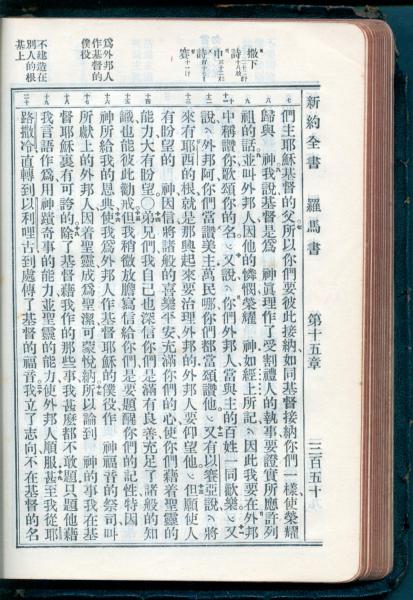 新約全書 羅馬書 第十五章 三百五十九
們主耶穌基督的父所以你們要彼此接納如同基督接納你們一樣使榮耀
歸與 神我說基督是爲 神眞理作了受割禮人的執事要證實所應許列
祖的話並叫外邦人因他的憐憫榮耀 神如經上所記因此我要在外邦
中稱讚你歌頌你的名又說你們外邦人當與主的百姓一同歡樂又
說外邦阿你們當讚美主萬民哪你們都當頌讚他又有以賽亞說將
來有耶西的根就是那興起來要治理外邦的外邦人要仰望他但願使人
有盼望的 神因信將諸般的喜樂平安充滿你們的心使你們藉着聖靈的
能力大有盼望〇弟兄們我自己也深信你們是滿有良善充足了諸般的知
識也能彼此勸戒但我稍微放膽寫信給你們是要題醒你們的記性特因
神所給我的恩典使我爲外邦人作基督耶穌的僕役作 神福音的祭司叫
所獻上的外邦人因着聖靈成爲聖潔可蒙悅納所以論到 神的事我在基
督耶穌裏有可誇的除了基督藉我作的那些事我甚麼都不敢題只題他藉
我言語作爲用神蹟奇事的能力並聖靈的能力使外邦人順服甚至我從耶
路撒冷直轉到以利哩古到處傳了基督的福音我立了志向不在基督的名
撒下
詩
申
詩
賽
爲外邦人
作基督的
僕役
不建造在
別人的根
基上
七
八
九
十
十一
十二
十三
十四
十五
十六
十七
十八
十九
二十